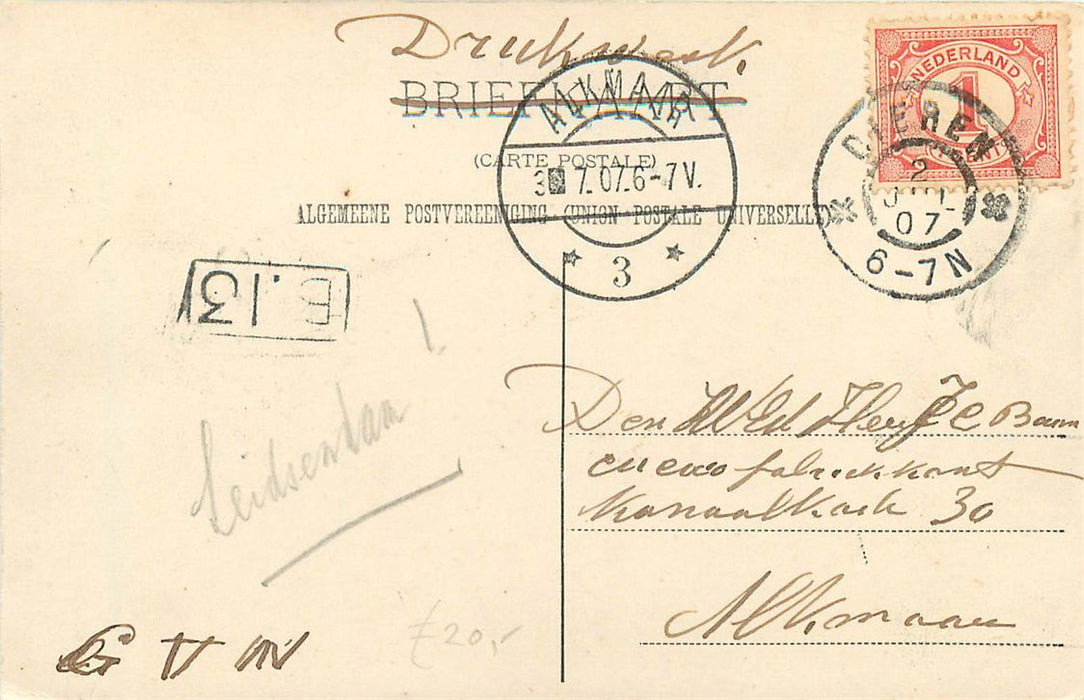 Drukwerk.
BRIEFKAART
(CARTE POSTALE)
ALGEMEENE POSTVEREENIGING (UNION POSTALE UNIVERSELLE)
NEDERLAND
1
CENT
ALKMAAR
3 7.07.6-7V.
3
DIEREN
2
JUL.
07
6-7N
E.13
Leidsendam
Den Heer J C
fabriekkant
Kanaalkade 30
Alkmaar
G V
£20,-